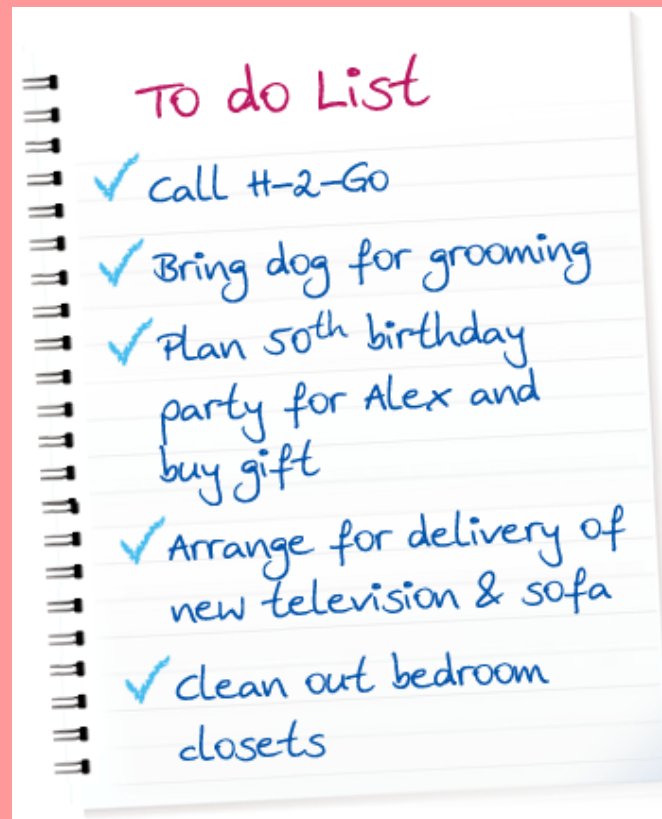 To do List
Call H-2-Go
Bring dog for grooming
Plan 50th birthday
party for Alex and
buy gift
Arrange for delivery of
new television & sofa
Clean out bedroom
closets